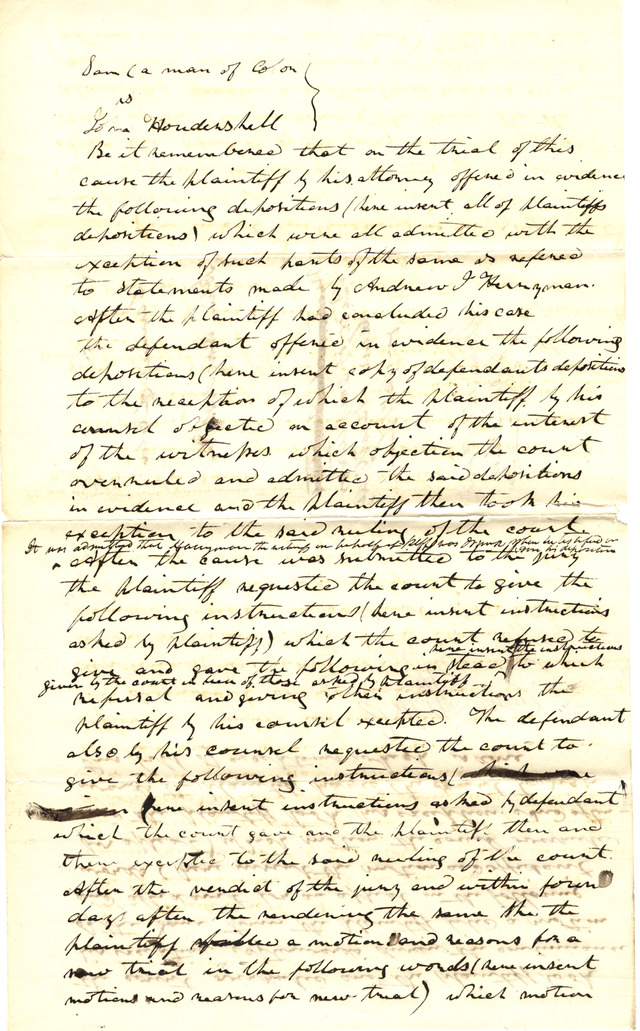 Sam (a man of Color
vs
Houdershell
Be it remembered that on the trial of this
cause the plaintiff by his attorney offered in evidence
the following depositions (here insert all of plaintiffs
depositions) which were all admitted with the
exception of such parts of the same as refered
to statements made by Andrew J Herryman.
After the plaintiff had concluded his case
the defendant offered in evidence the following
depositions (here insert copy of defendants depositions
to the reception of which the plaintiff by his
counsel objected on account of the interest
of the witnesses which objection the court
overruled and admitted the said depositions
in evidence and the plaintiff then took his
exception to the said ruling of the court
It was admitted that Harryman the witness on behalf of was when he testified or his deposition
After the cause was submitted to the jury
the plaintiff requested the court to give the
following instructions (here insert instructions
asked by plaintiff) which the court refused to
here insert the instructions
give and gave the following in stead to which
given by the court in lieu of those asked by plaintiff
refusal and giving other instructions the
plaintiff by his counsel excepted. The defendant
also by his counsel requested the court to
give the following instructions (
here insert instructions asked by defendant
which the court gave and the plaintiff then and
there excepted to the said ruling of the court.
After the verdict of the jury and within four
days after the rendering the same the the
plaintiff filed a motion and reasons for a
new trial in the following words (here insert
motions and reasons for new trial) which motion